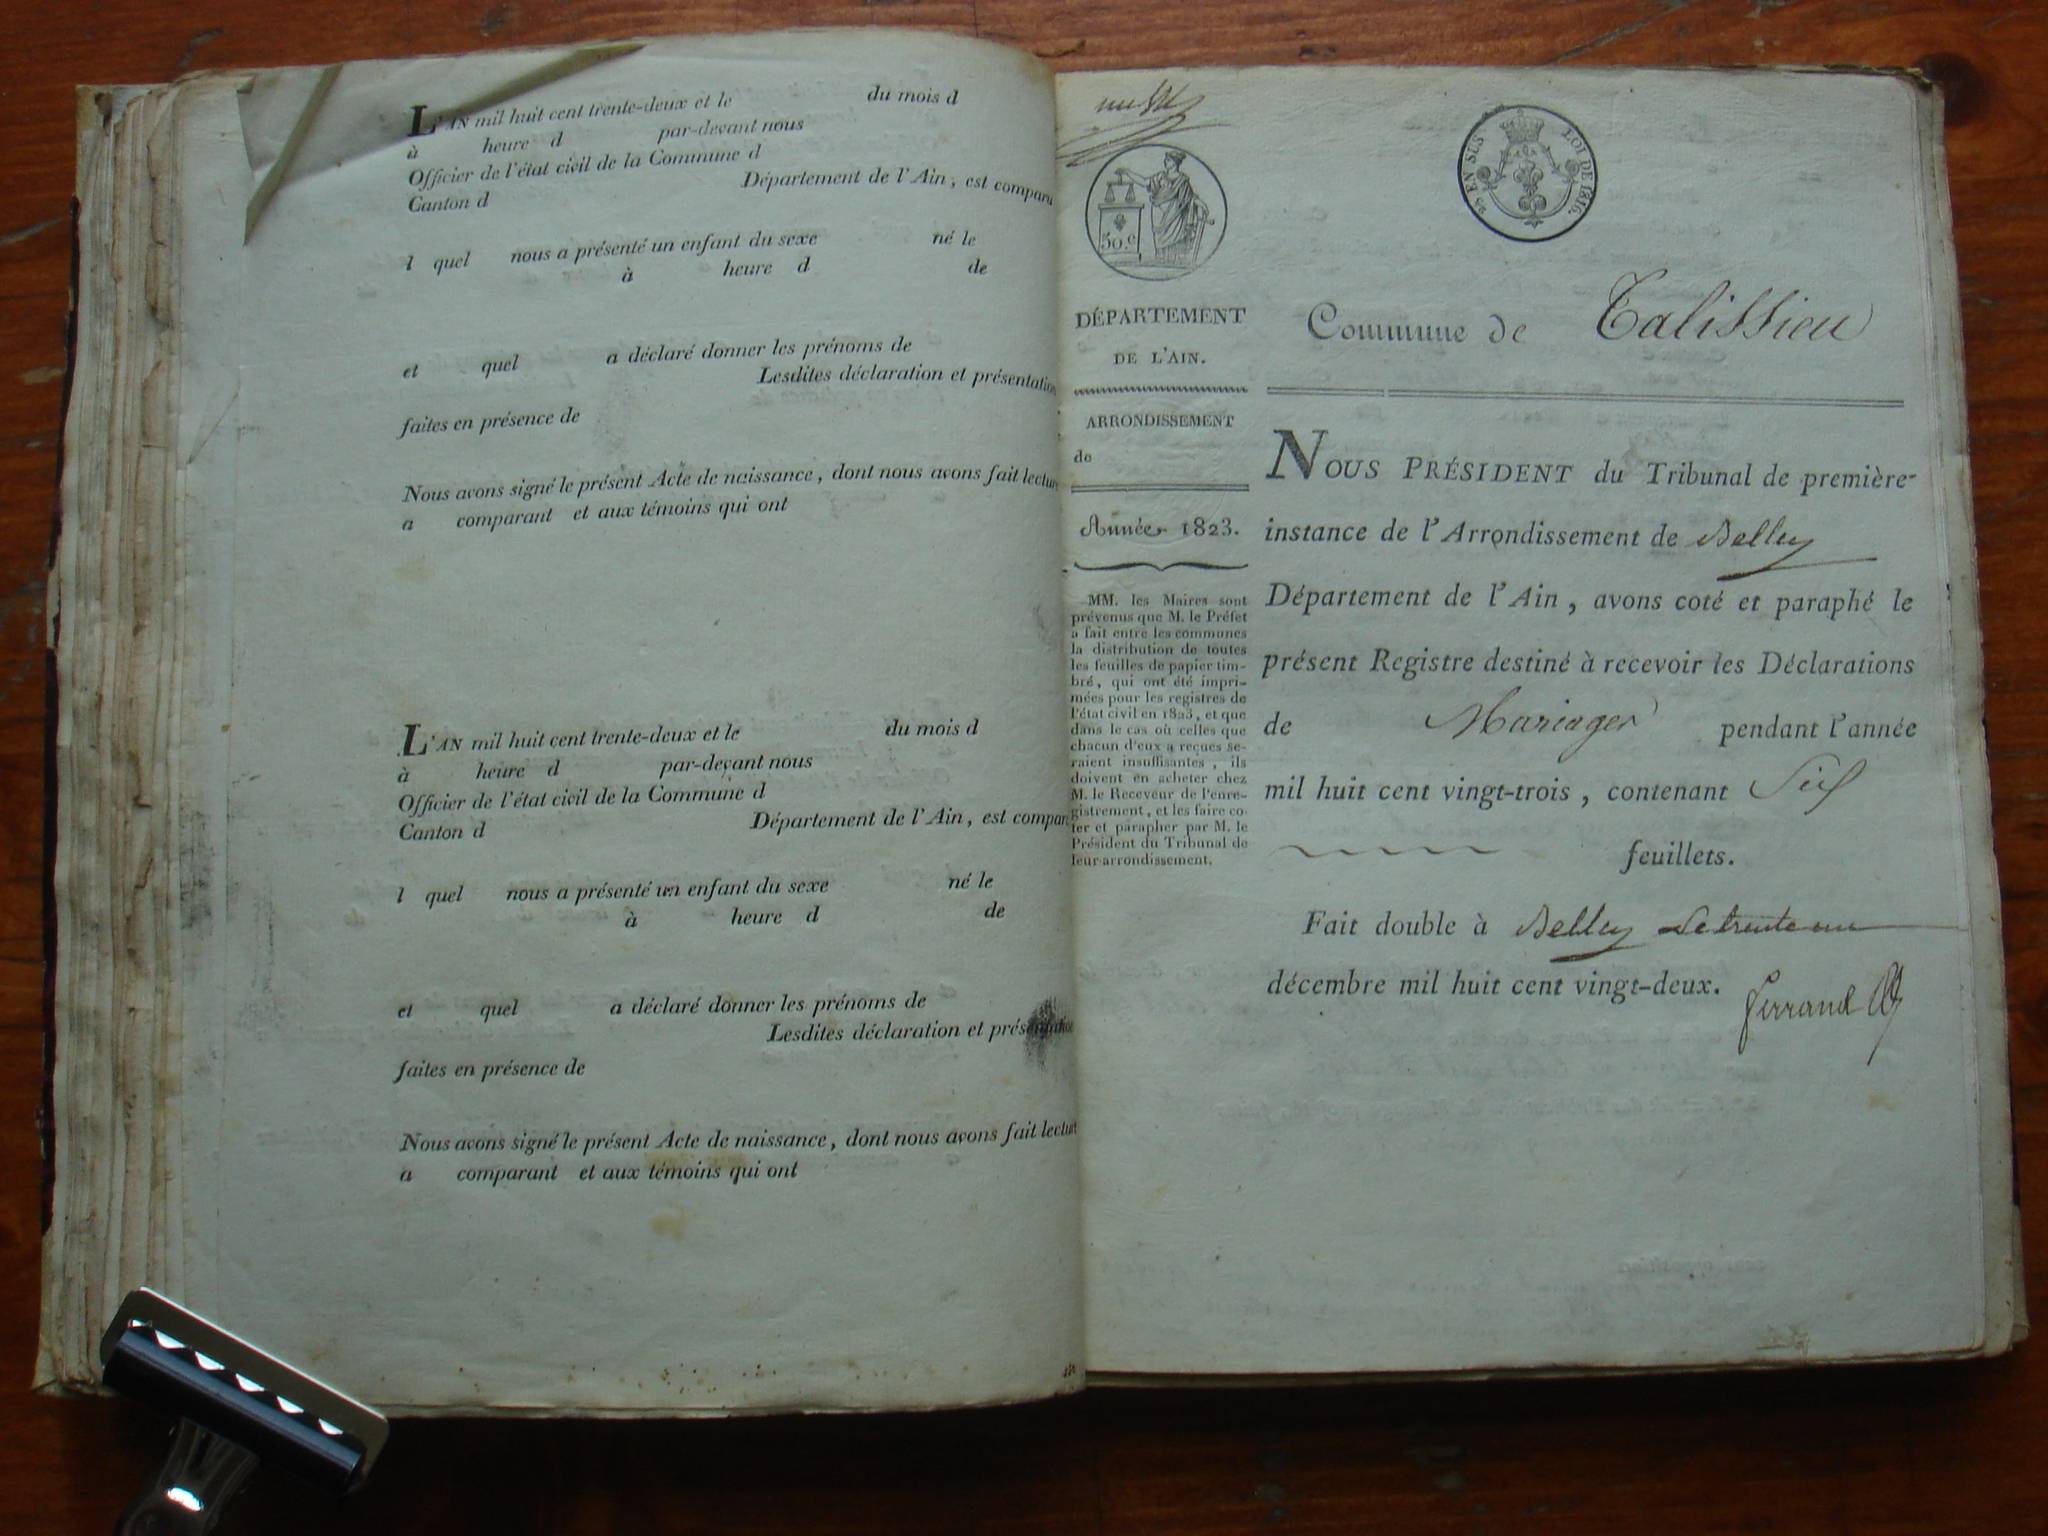 L'AN mil huit cent trente-deux et le du mois d
à heure d par-devant nous
Officier de l'état civil de la Commune d
Canton d Département de l'Ain, est comparu
l quel nous a présenté un enfant du sexe né le
à heure d de
et quel a déclaré donner les prénoms de
Lesdites déclaration et présentation
faites en présence de
Nous avons signé le présent Acte de naissance, dont nous avons fait lecture
a comparant et aux témoins qui ont
L'AN mil huit cent trente-deux et le du mois d
à heure d par-devant nous
Officier de l'état civil de la Commune d
Canton d Département de l'Ain, est compar
l quel nous a présenté un enfant du sexe né le
à heure d de
et quel a déclaré donner les prénoms de
Lesdites déclaration et présentation
faites en présence de
Nous avons signé le présent Acte de naissance, dont nous avons fait lecture
a comparant et aux témoins qui ont
50.c
EN SUS LOI DE 1816.
DÉPARTEMENT
DE L'AIN.
ARRONDISSEMENT
de
Année 1823.
MM. les Maires sont
prévenus que M. le Préfet
a fait entre les communes
la distribution de toutes
les feuilles de papier tim-
bré, qui ont été impri-
mées pour les registres de
l'état civil en 1823, et que
dans le cas où celles que
chacun d'eux a reçues se-
raient insuffisantes, ils
doivent en acheter chez
M. le Receveur de l'enre-
gistrement, et les faire co-
ter et parapher par M. le
Président du Tribunal de
leur arrondissement.
Commune de Talissieu
NOUS PRÉSIDENT du Tribunal de première-
instance de l'Arrondissement de Belley
Département de l'Ain, avons coté et paraphé le
présent Registre destiné à recevoir les Déclarations
de Mariages pendant l'année
mil huit cent vingt-trois, contenant Six
feuillets.
Fait double à Belley Le trente un
décembre mil huit cent vingt-deux.
Ferrand